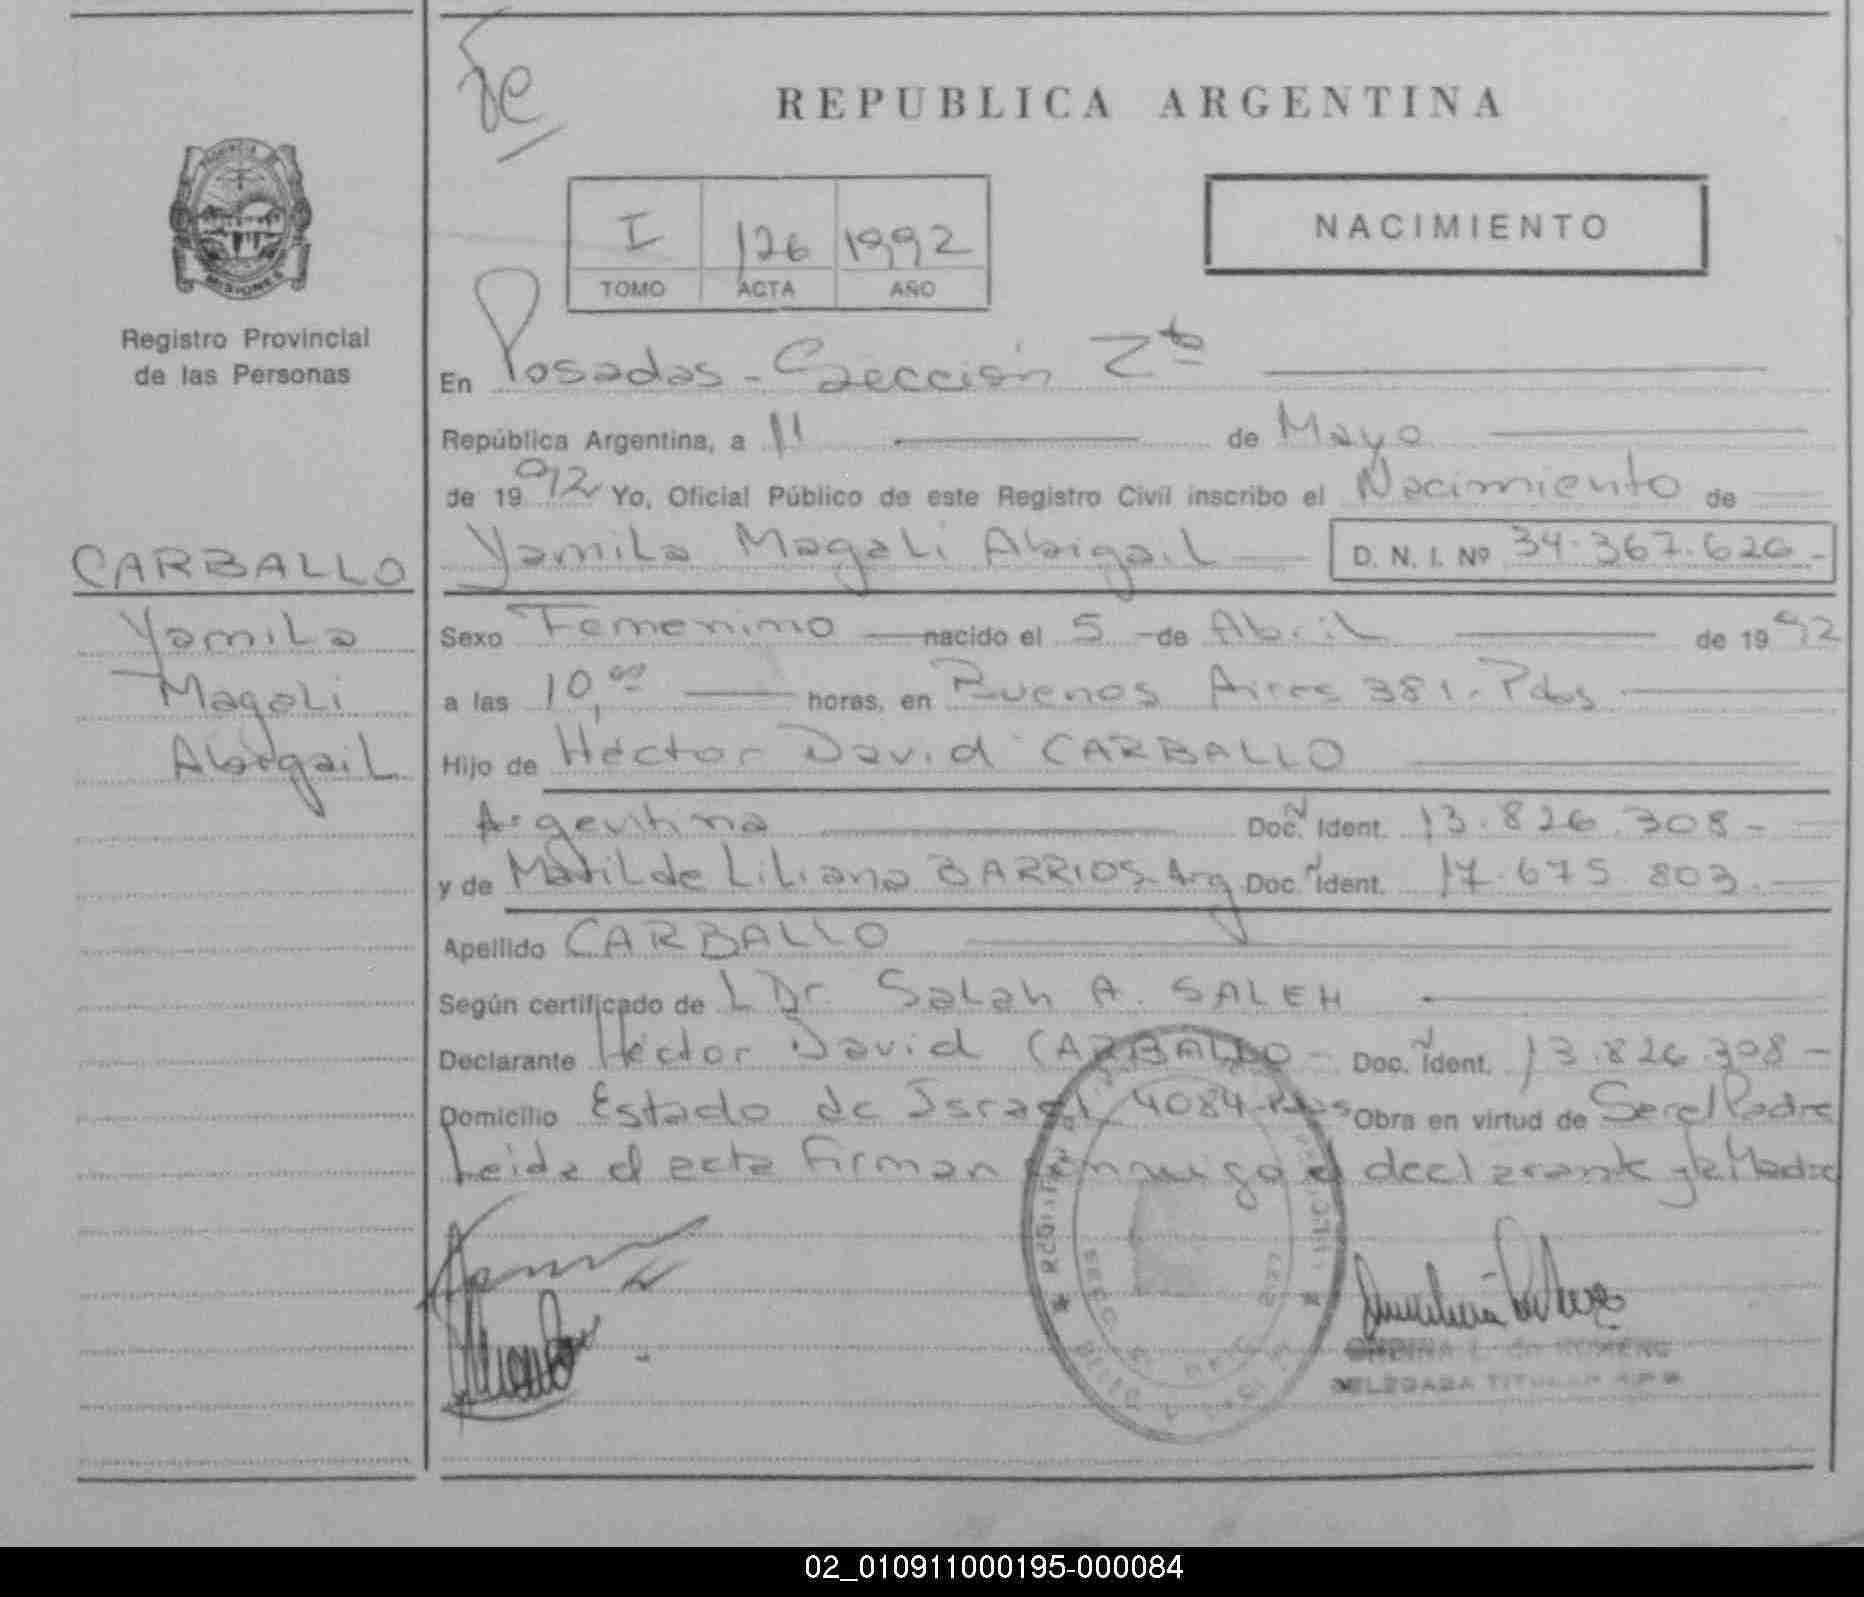 REPUBLICA ARGENTINA
I 126 1992
TOMO ACTA AÑO
NACIMIENTO
MISIONES
Registro Provincial
de las Personas
En Posadas - Sección 7ta
República Argentina, a 11 de Mayo
de 1992 Yo, Oficial Público de este Registro Civil inscribo el Nacimiento de
CARBALLO
Yamila
Magali
Abigail
Yamila Magali Abigail D. N. I. Nº 34.367.626-
Sexo Femenino nacido el 5 - de Abril de 1992
a las 10,00 horas, en Buenos Aires 381 - Pdas
Hijo de Héctor David CARBALLO
Argentina Doc. Ident. 13.826.308-
y de Matilde Liliana BARRIOS - Arg Doc. Ident. 17.675.803.
Apellido CARBALLO
Según certificado de L Dr. Salah A. SALEH
Declarante Héctor David CARBALLO - Doc. Ident. 13.826.308-
Domicilio Estado de Israel 4084 - Pdas Obra en virtud de Ser el Padre
Leida el acta firman conmigo el declarante y la Madre
DELEGADA TITULAR
02_010911000195-000084